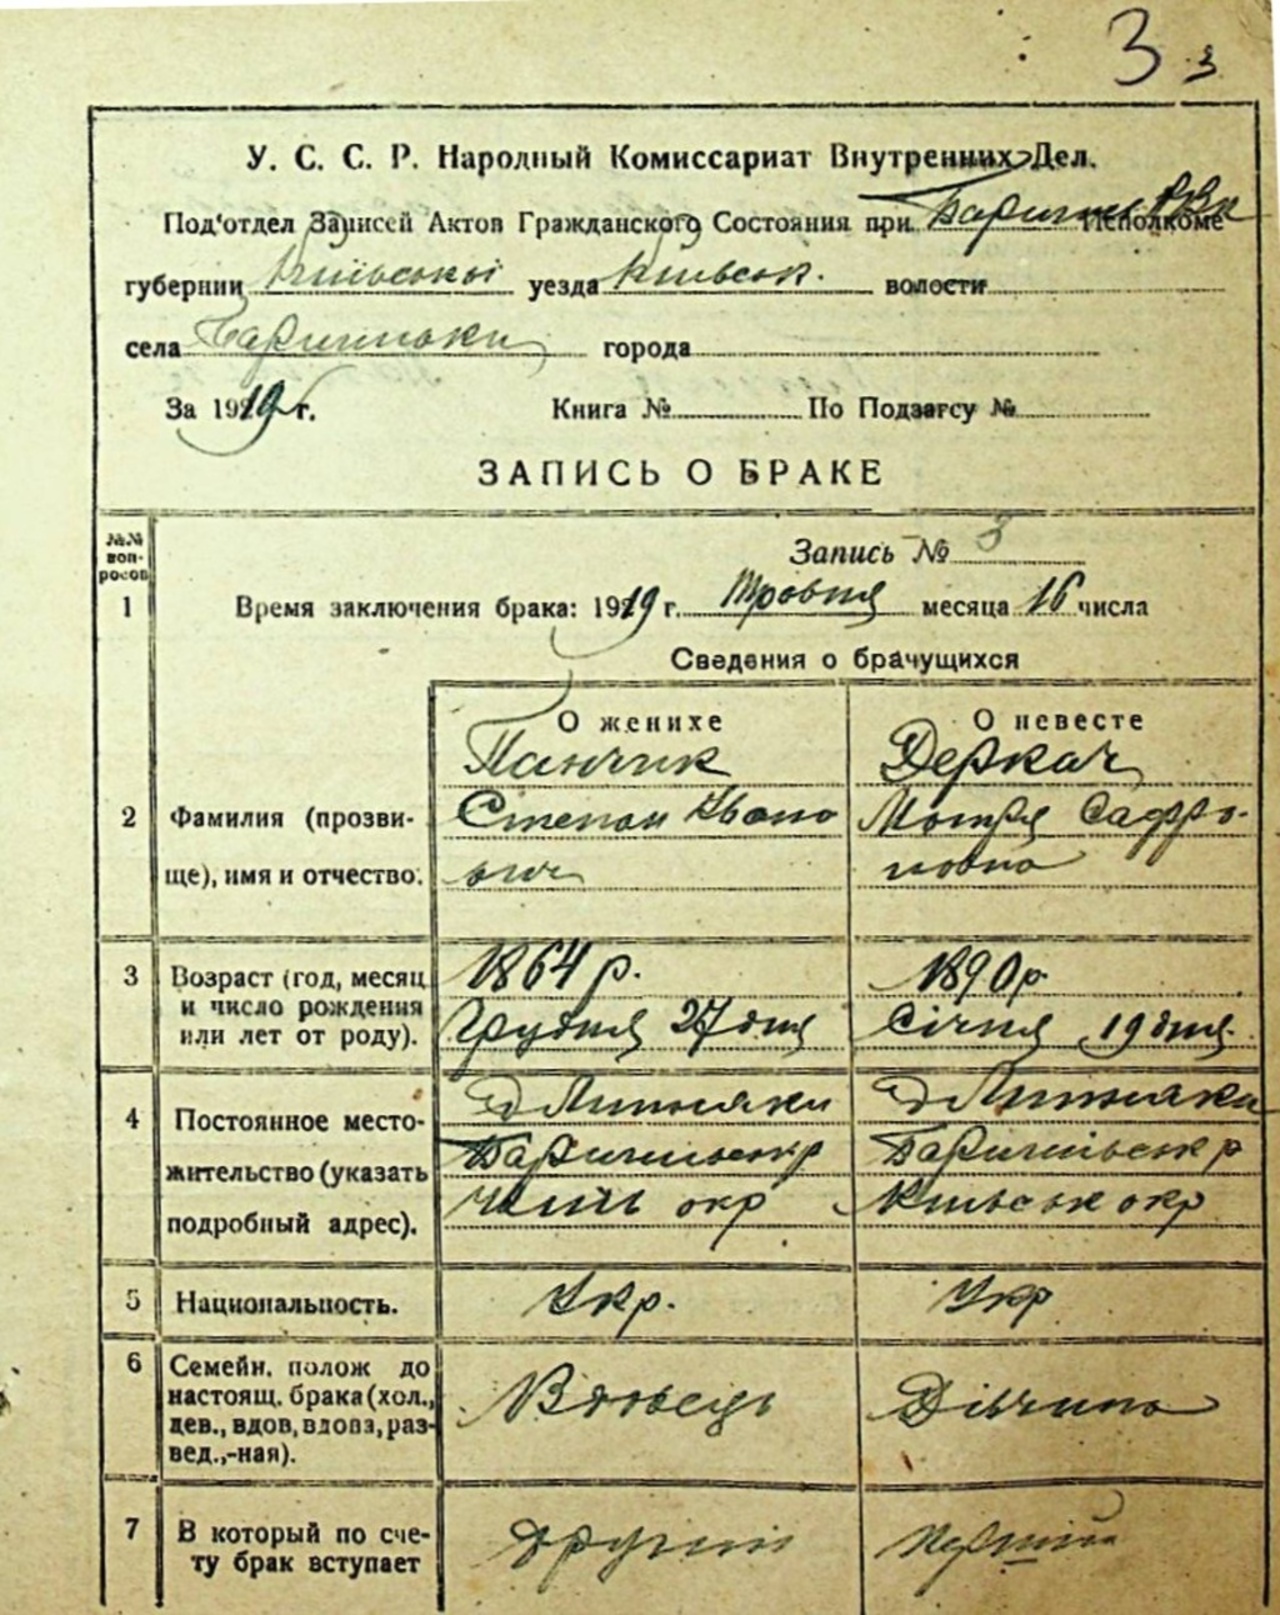 3 3
У. С. С. Р. Народный Комиссариат Внутренних Дел.
Под'отдел Записей Актов Гражданского Состояния при Исполкоме
губернии Київської уезда Київськ. волости
села Баришівки города
За 1919 г. Книга № По Подзагсу №
ЗАПИСЬ О БРАКЕ
№№ воп-росов
Запись № 3
1 Время заключения брака: 1919 г. Травня месяца 16 числа
Сведения о брачущихся
О женихе О невесте
Панчик Деркач
2 Фамилия (прозви- Степан Івано Мотря Сафро-
ще), имя и отчество. вич новна
3 Возраст (год, месяц 1864 р. 1890 р.
и число рождения Грудня 27 дня Січня 19 дня
или лет от роду).
4 Постоянное место- Баришівськ р Баришівськ р
жительство (указать окр Київськ окр
подробный адрес).
5 Национальность. Укр. Укр
6 Семейн. полож до
настоящ. брака (хол., Вдовець Дівчина
дев., вдов, вдова, раз-
вед.,-ная).
7 В который по сче- другий перший
ту брак вступает